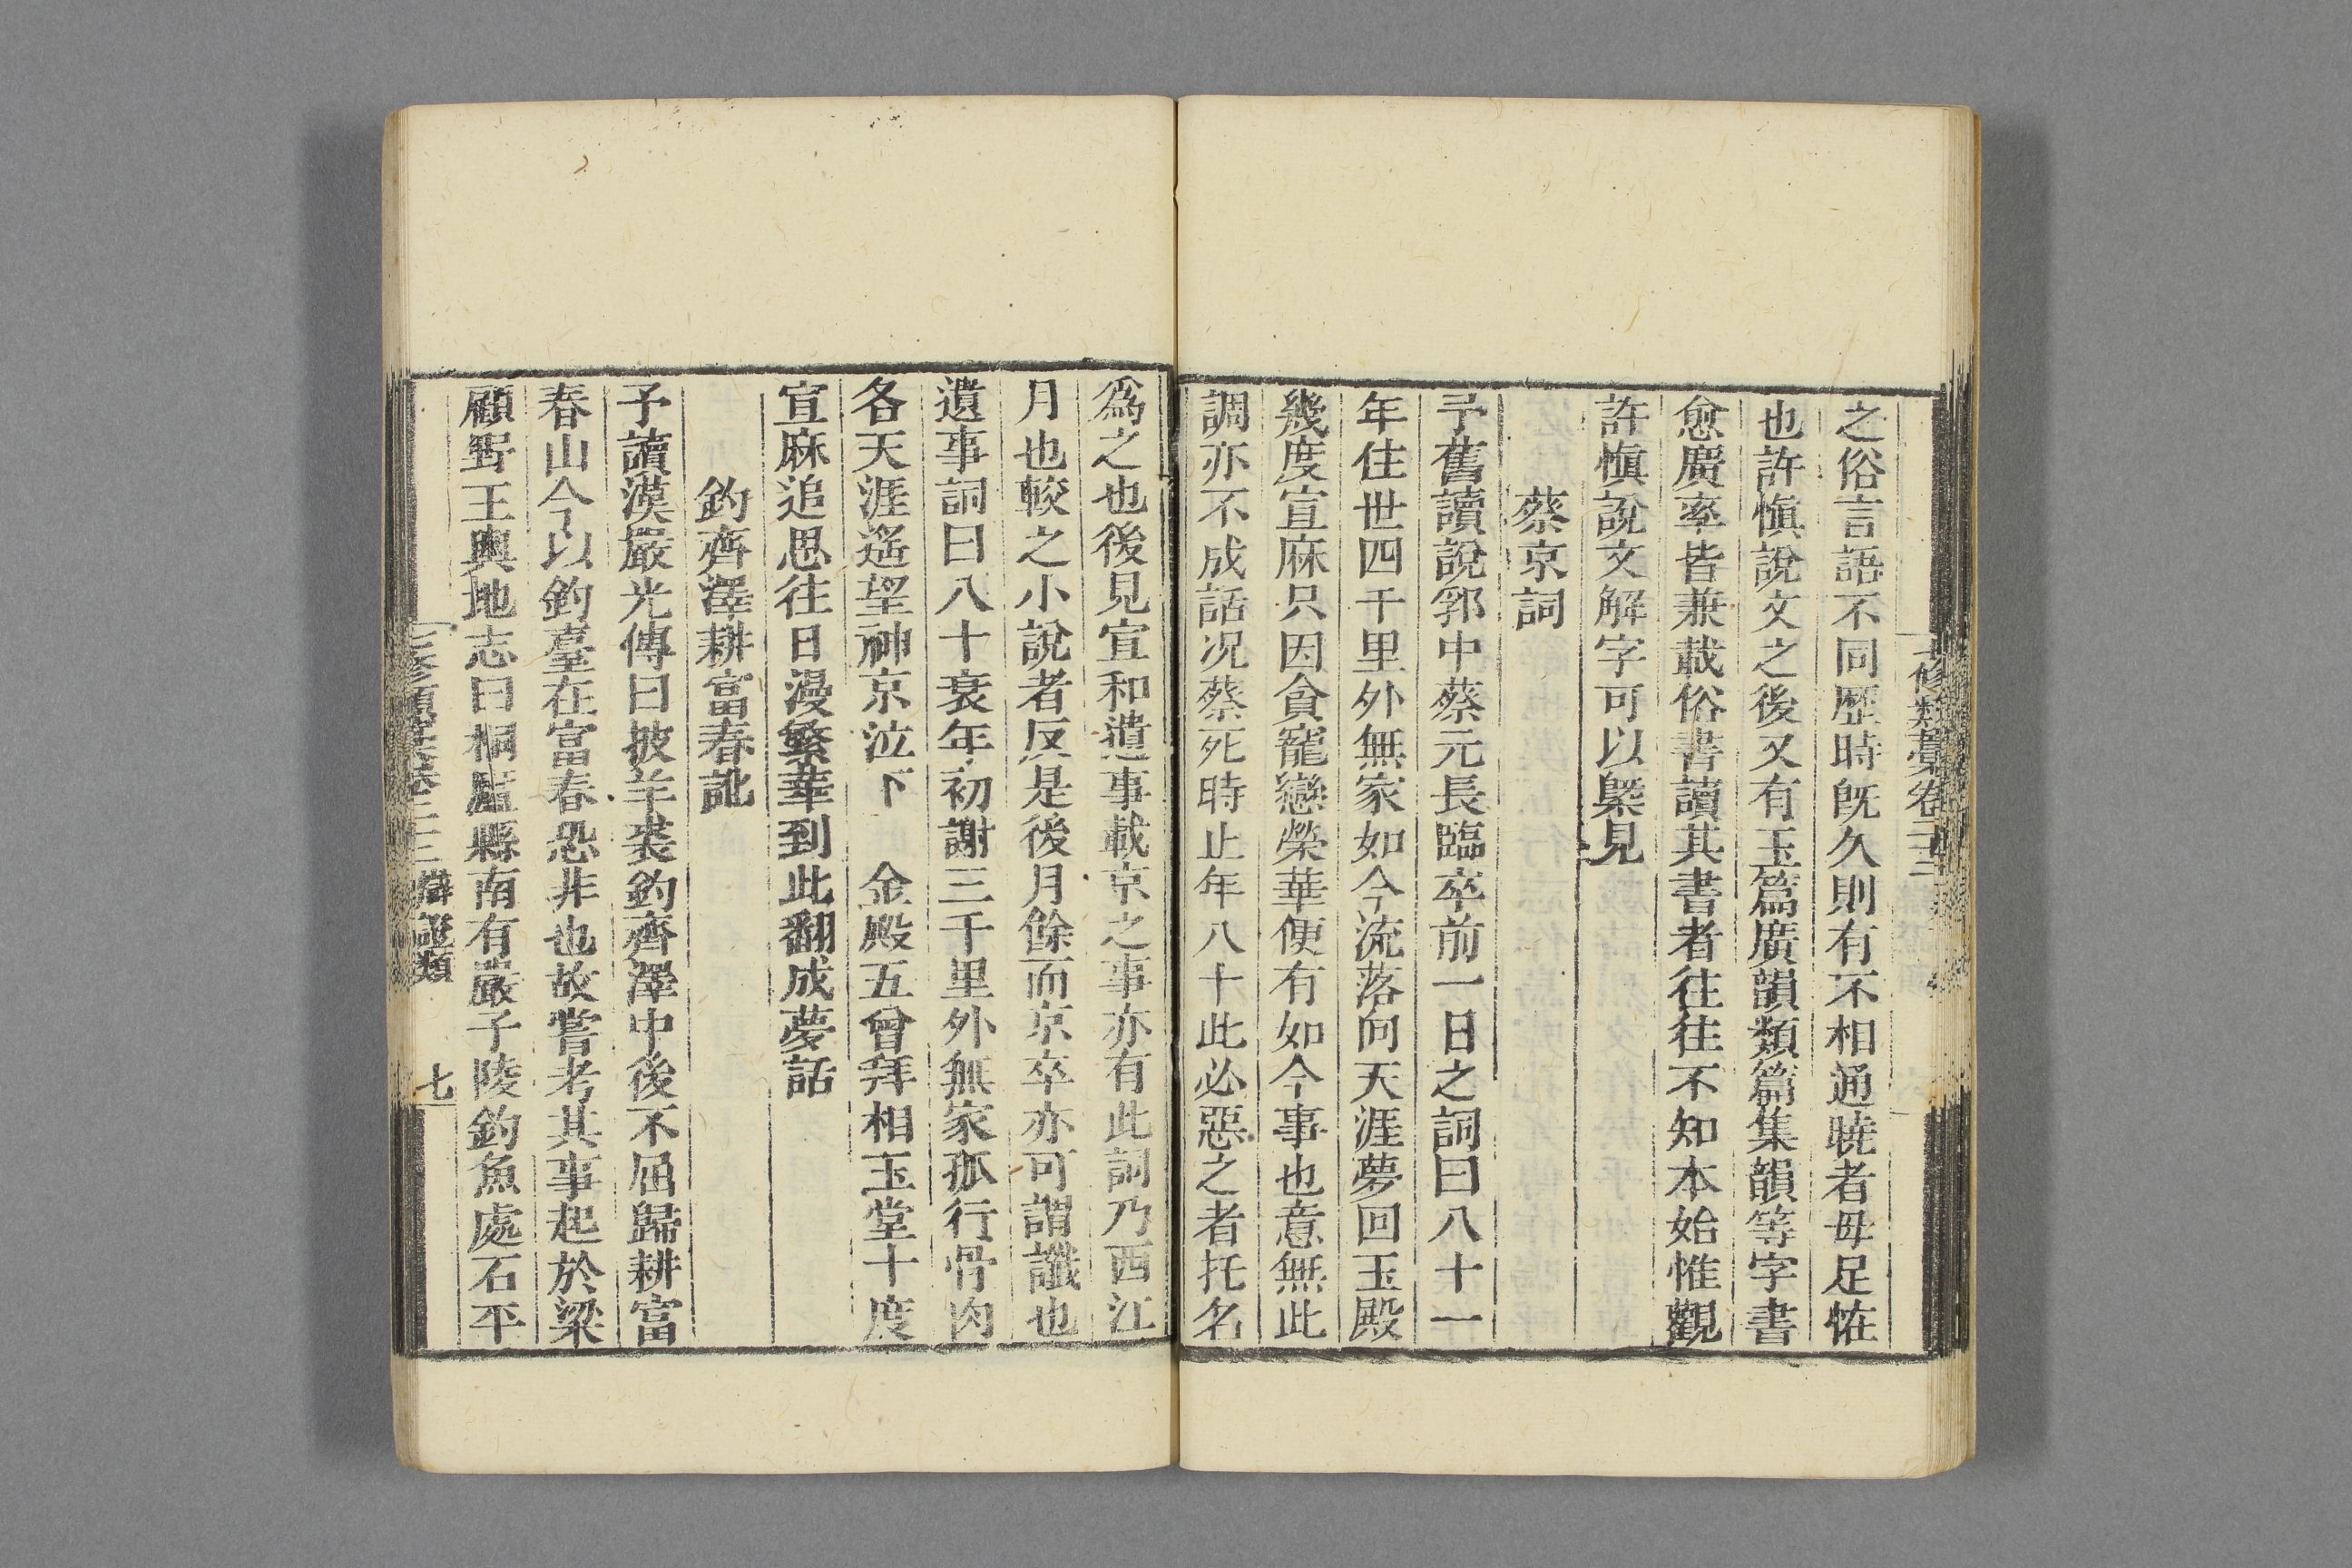 之俗言語不同歷時旣久則有不相通曉者毋足恠
也許愼說文之後又有玉篇廣韻類篇集韻等字書
愈廣率皆兼載俗書讀其書者往往不知本始惟觀
許愼說文解字可以槩見
蔡京詞
予舊讀說郛中蔡元長臨卒前一日之詞曰八十一
年住世四千里外無家如今流落向天涯夢回玉殿
幾度宣麻只因貪寵戀榮華便有如今事也意無此
調亦不成話况蔡死時止年八十此必惡之者托名
爲之也後見宣和遺事載京之事亦有此詞乃西江
月也較之小說者反是後月餘而京卒亦可謂讖也
遺事詞曰八十衰年初謝三千里外無家孤行骨肉
各天涯遙望神京泣下 金殿五曾拜相玉堂十度
宣麻追思往日漫繁華到此翻成夢話
釣齊澤耕富春訛
予讀漢嚴光傳曰披羊裘釣齊澤中後不屈歸耕富
春山今以釣臺在富春恐非也故嘗考其事起於梁
顧野王輿地志曰桐廬縣南有嚴子陵釣魚處石平
七修類藁卷二十三 辯證類 七